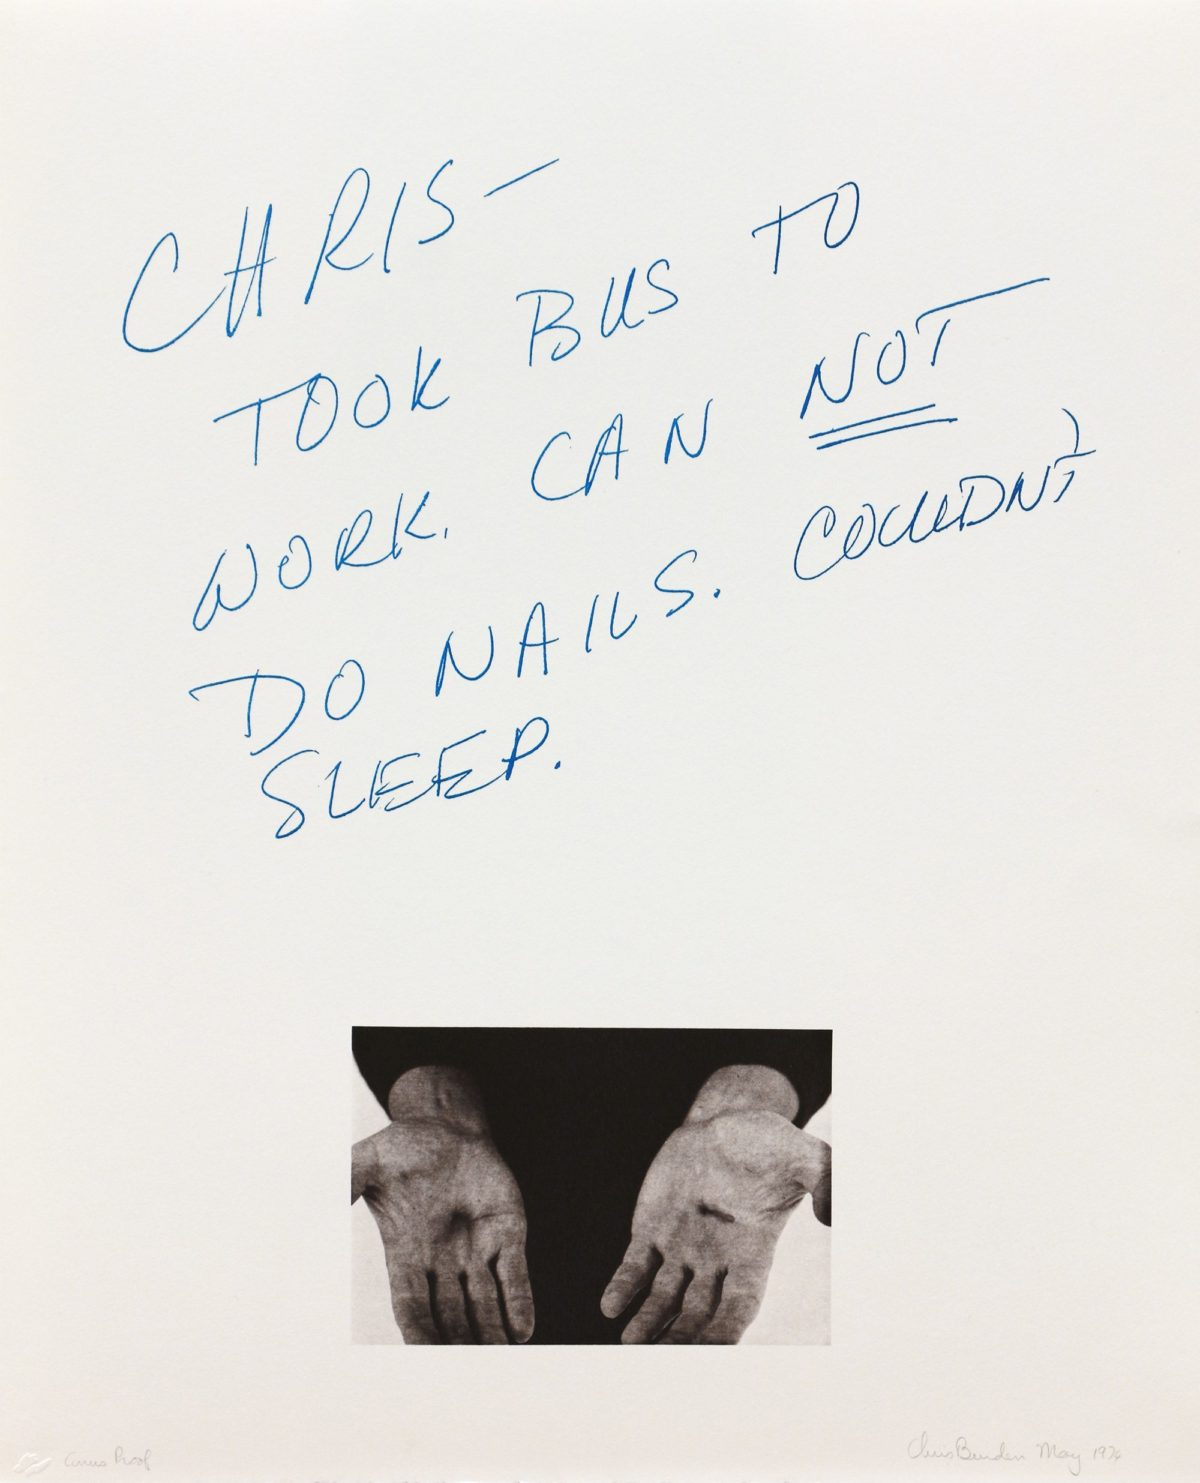 CHRIS—
TOOK BUS TO
WORK. CAN NOT
DO NAILS. COULDN'T
SLEEP.
Cirrus Proof Chris Burden May 1974